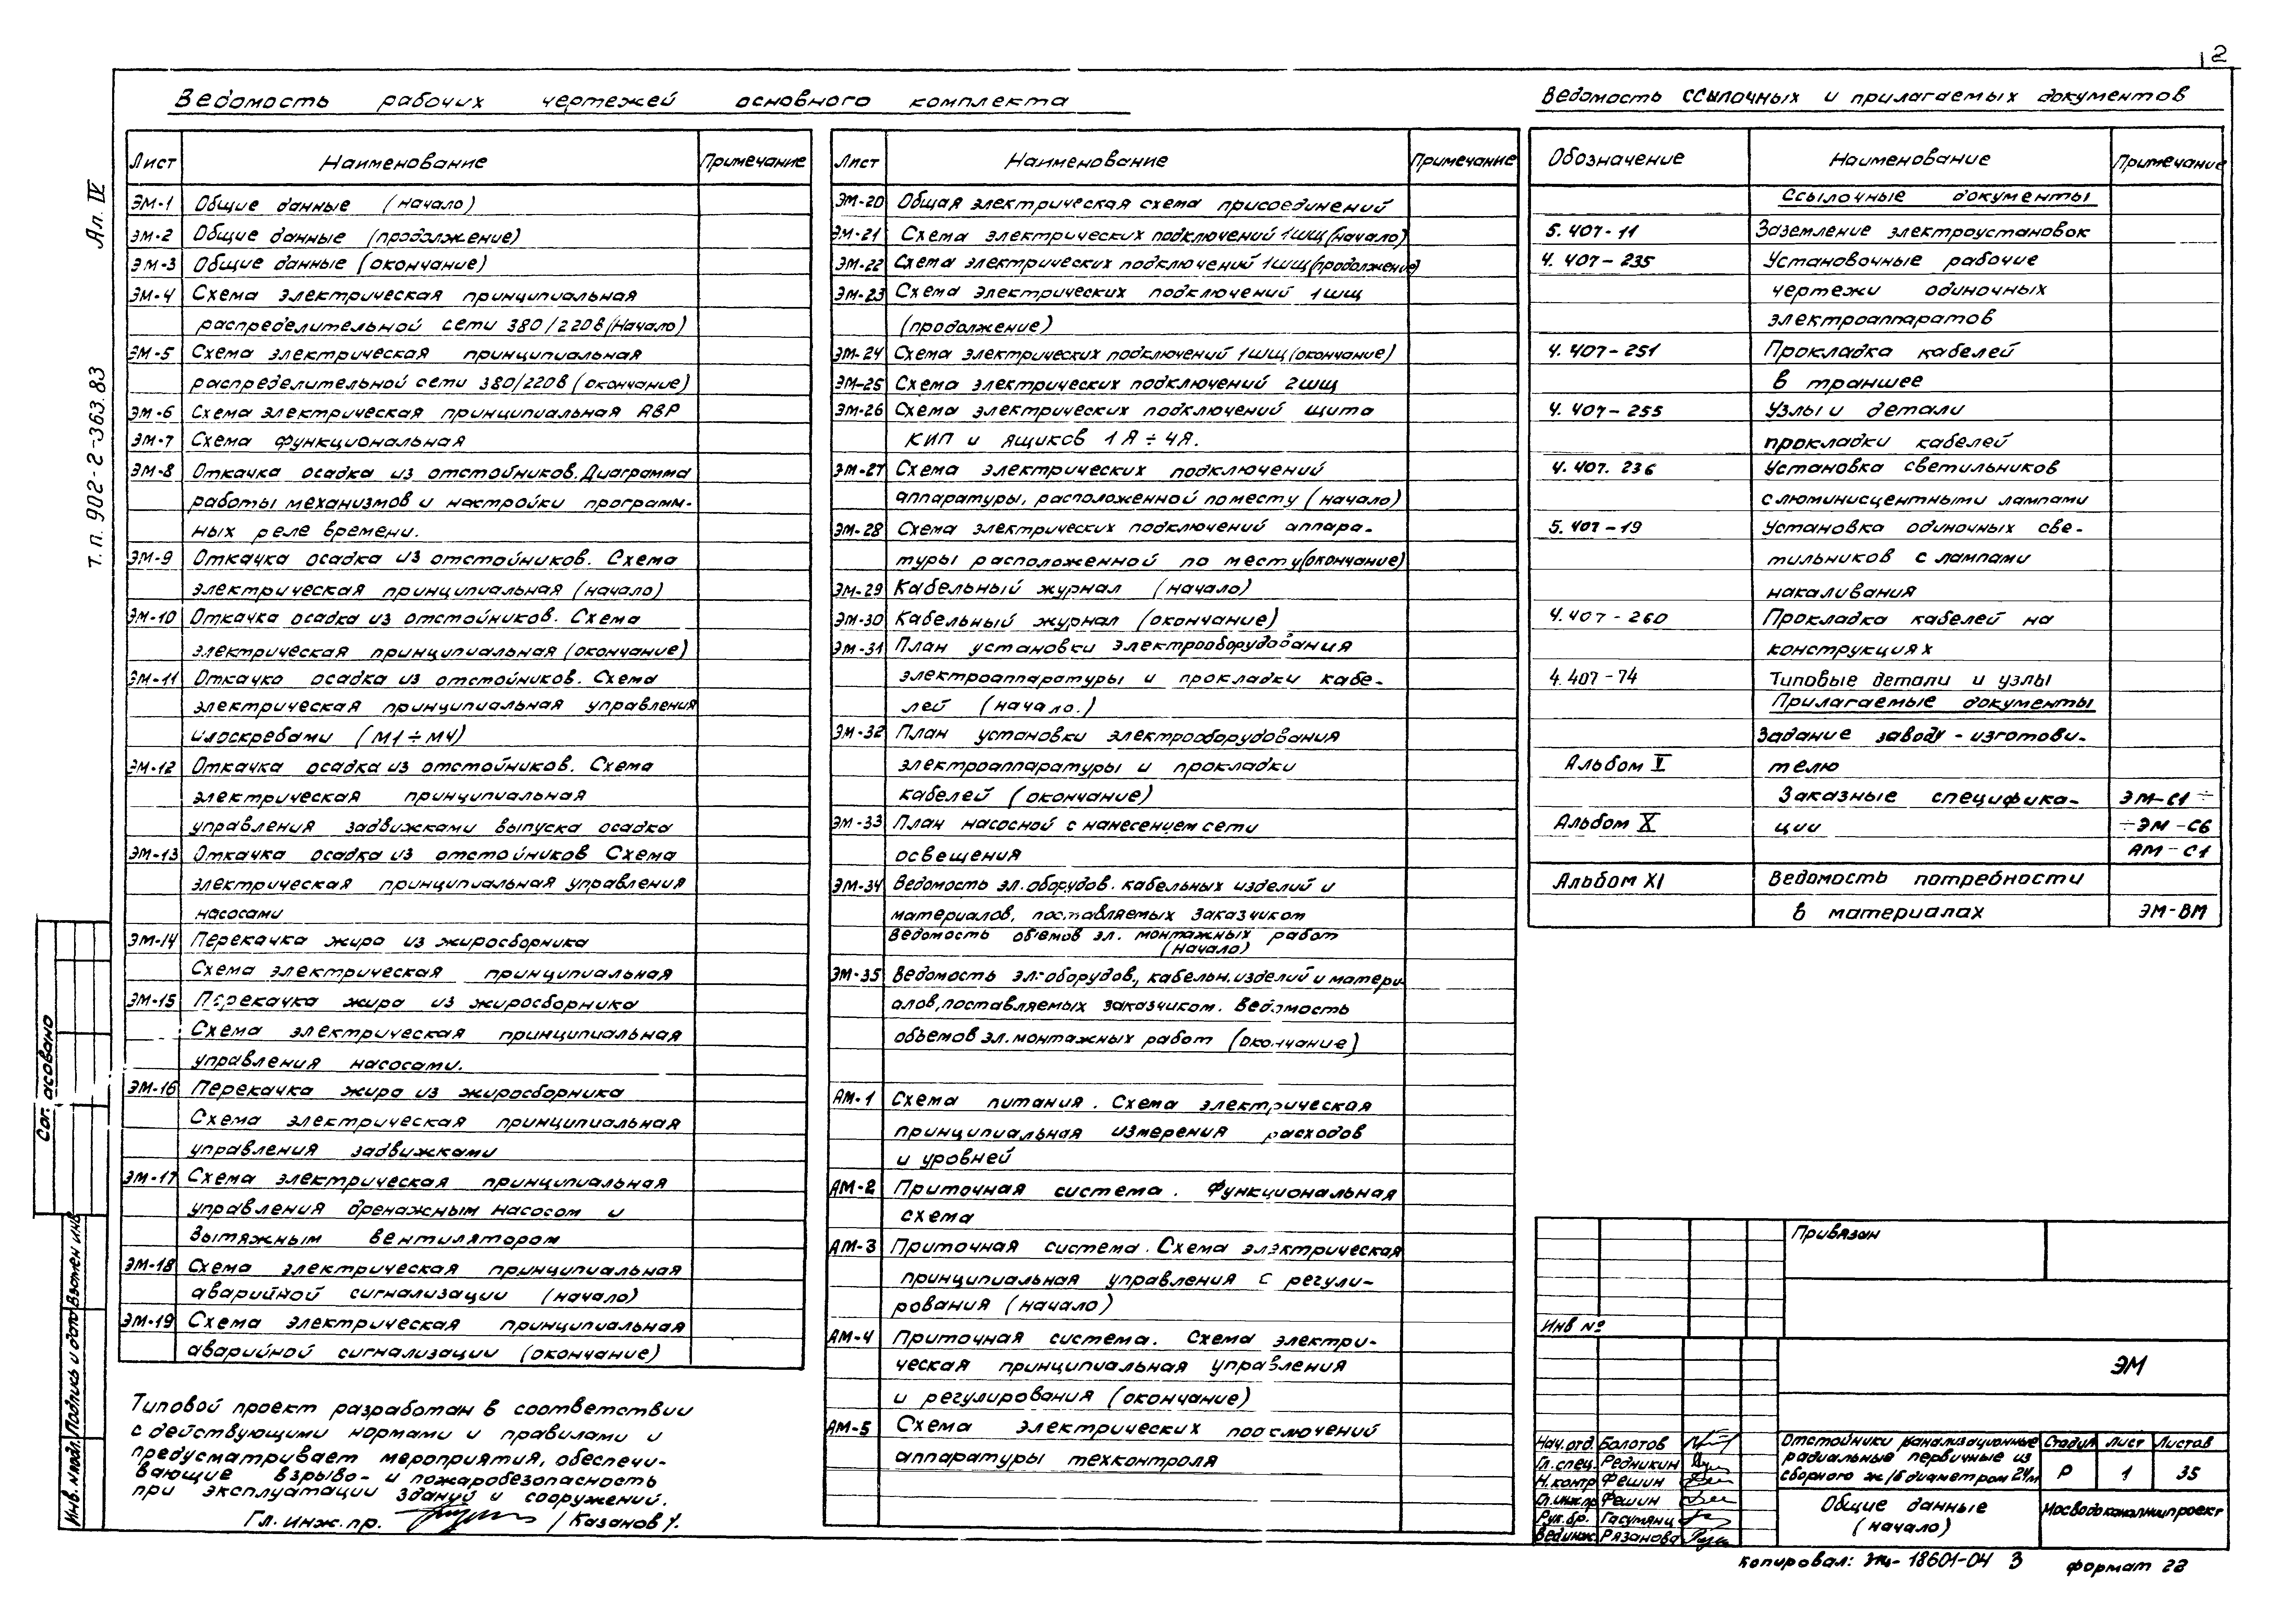 2
Ведомость рабочих чертежей основного комплекта
Лист Наименование Примечание
ЭМ-1 Общие данные (начало)
ЭМ-2 Общие данные (продолжение)
ЭМ-3 Общие данные (окончание)
ЭМ-4 Схема электрическая принципиальная
распределительной сети 380/220в (начало)
ЭМ-5 Схема электрическая принципиальная
распределительной сети 380/220в (окончание)
ЭМ-6 Схема электрическая принципиальная АВР
ЭМ-7 Схема функциональная
ЭМ-8 Откачка осадка из отстойников. Диаграмма
работы механизмов и настройки программ-
ных реле времени.
ЭМ-9 Откачка осадка из отстойников. Схема
электрическая принципиальная (начало)
ЭМ-10 Откачка осадка из отстойников. Схема
электрическая принципиальная (окончание)
ЭМ-11 Откачка осадка из отстойников. Схема
электрическая принципиальная управления
илоскребами (М1÷М4)
ЭМ-12 Откачка осадка из отстойников. Схема
электрическая принципиальная
управления задвижками выпуска осадка
ЭМ-13 Откачка осадка из отстойников Схема
электрическая принципиальная управления
насосами
ЭМ-14 Перекачка жира из жиросборника
Схема электрическая принципиальная
ЭМ-15 Перекачка жира из жиросборника
Схема электрическая принципиальная
управления насосами.
ЭМ-16 Перекачка жира из жиросборника
Схема электрическая принципиальная
управления задвижками
ЭМ-17 Схема электрическая принципиальная
управления дренажным насосом и
вытяжным вентилятором
ЭМ-18 Схема электрическая принципиальная
аварийной сигнализации (начало)
ЭМ-19 Схема электрическая принципиальная
аварийной сигнализации (окончание)
Типовой проект разработан в соответствии
с действующими нормами и правилами и
предусматривает мероприятия, обеспечи-
вающие взрыво- и пожаробезопасность
при эксплуатации зданий и сооружений.
Гл. инж. пр. /Казанов
Лист Наименование Примечание
ЭМ-20 Общая электрическая схема присоединений
ЭМ-21 Схема электрических подключений 1шщ (начало)
ЭМ-22 Схема электрических подключений 1шщ (продолжение)
ЭМ-23 Схема электрических подключений 1шщ
(продолжение)
ЭМ-24 Схема электрических подключений 1шщ (окончание)
ЭМ-25 Схема электрических подключений 2шщ
ЭМ-26 Схема электрических подключений щита
КИП и ящиков 1Я÷4Я.
ЭМ-27 Схема электрических подключений
аппаратуры, расположенной по месту (начало)
ЭМ-28 Схема электрических подключений аппара-
туры расположенной по месту (окончание)
ЭМ-29 Кабельный журнал (начало)
ЭМ-30 Кабельный журнал (окончание)
ЭМ-31 План установки электрооборудования
электроаппаратуры и прокладки кабе-
лей (начало.)
ЭМ-32 План установки электрооборудования
электроаппаратуры и прокладки
кабелей (окончание)
ЭМ-33 План насосной с нанесением сети
освещения
ЭМ-34 Ведомость эл. оборудов. кабельных изделий и
материалов, поставляемых заказчиком
Ведомость объемов эл. монтажных работ
(начало)
ЭМ-35 Ведомость эл. оборудов., кабельн. изделий и матери-
алов, поставляемых заказчиком. Ведомость
объемов эл. монтажных работ (окончание)
АМ-1 Схема питания. Схема электрическая
принципиальная измерения расходов
и уровней
АМ-2 Приточная система. Функциональная
схема
АМ-3 Приточная система. Схема электрическая
принципиальная управления с регули-
рования (начало)
АМ-4 Приточная система. Схема электри-
ческая принципиальная управления
и регулирования (окончание)
АМ-5 Схема электрических подключений
аппаратуры техконтроля
Ведомость ссылочных и прилагаемых документов
Обозначение Наименование Примечание
Ссылочные документы
5.407-11 Заземление электроустановок
4.407-235 Установочные рабочие
чертежи одиночных
электроаппаратов
4.407-251 Прокладка кабелей
в траншее
4.407-255 Узлы и детали
прокладки кабелей
4.407.236 Установка светильников
с люминисцентными лампами
5.407-19 Установка одиночных све-
тильников с лампами
накаливания
4.407-260 Прокладка кабелей на
конструкциях
4.407-74 Типовые детали и узлы
Прилагаемые документы
Задание заводу-изготови-
Альбом V телю
Заказные специфика- ЭМ-С1÷
Альбом X ции ÷ЭМ-С6
АМ-С1
Альбом XI Ведомость потребности
в материалах ЭМ-ВМ
Привязан
Инв №
ЭМ
Нач. отд. Болотов
Гл. спец. Редникин
Н. контр Фешин
Гл. инж. пр Фешин
Рук. бр. Гасумянц
Вед. инж. Рязанова
Отстойники канализационные
радиальные первичные из
сборного ж/б диаметром 24м
Стадия Лист Листов
Р 1 35
Общие данные
(начало)
Мосводоканалниипроект
Копировал: 18601-04 3 формат 22
Ал. IV
т. п. 902-2-363.83
Согласовано
Взамен инв
Подпись и дата
Инв. № подл.